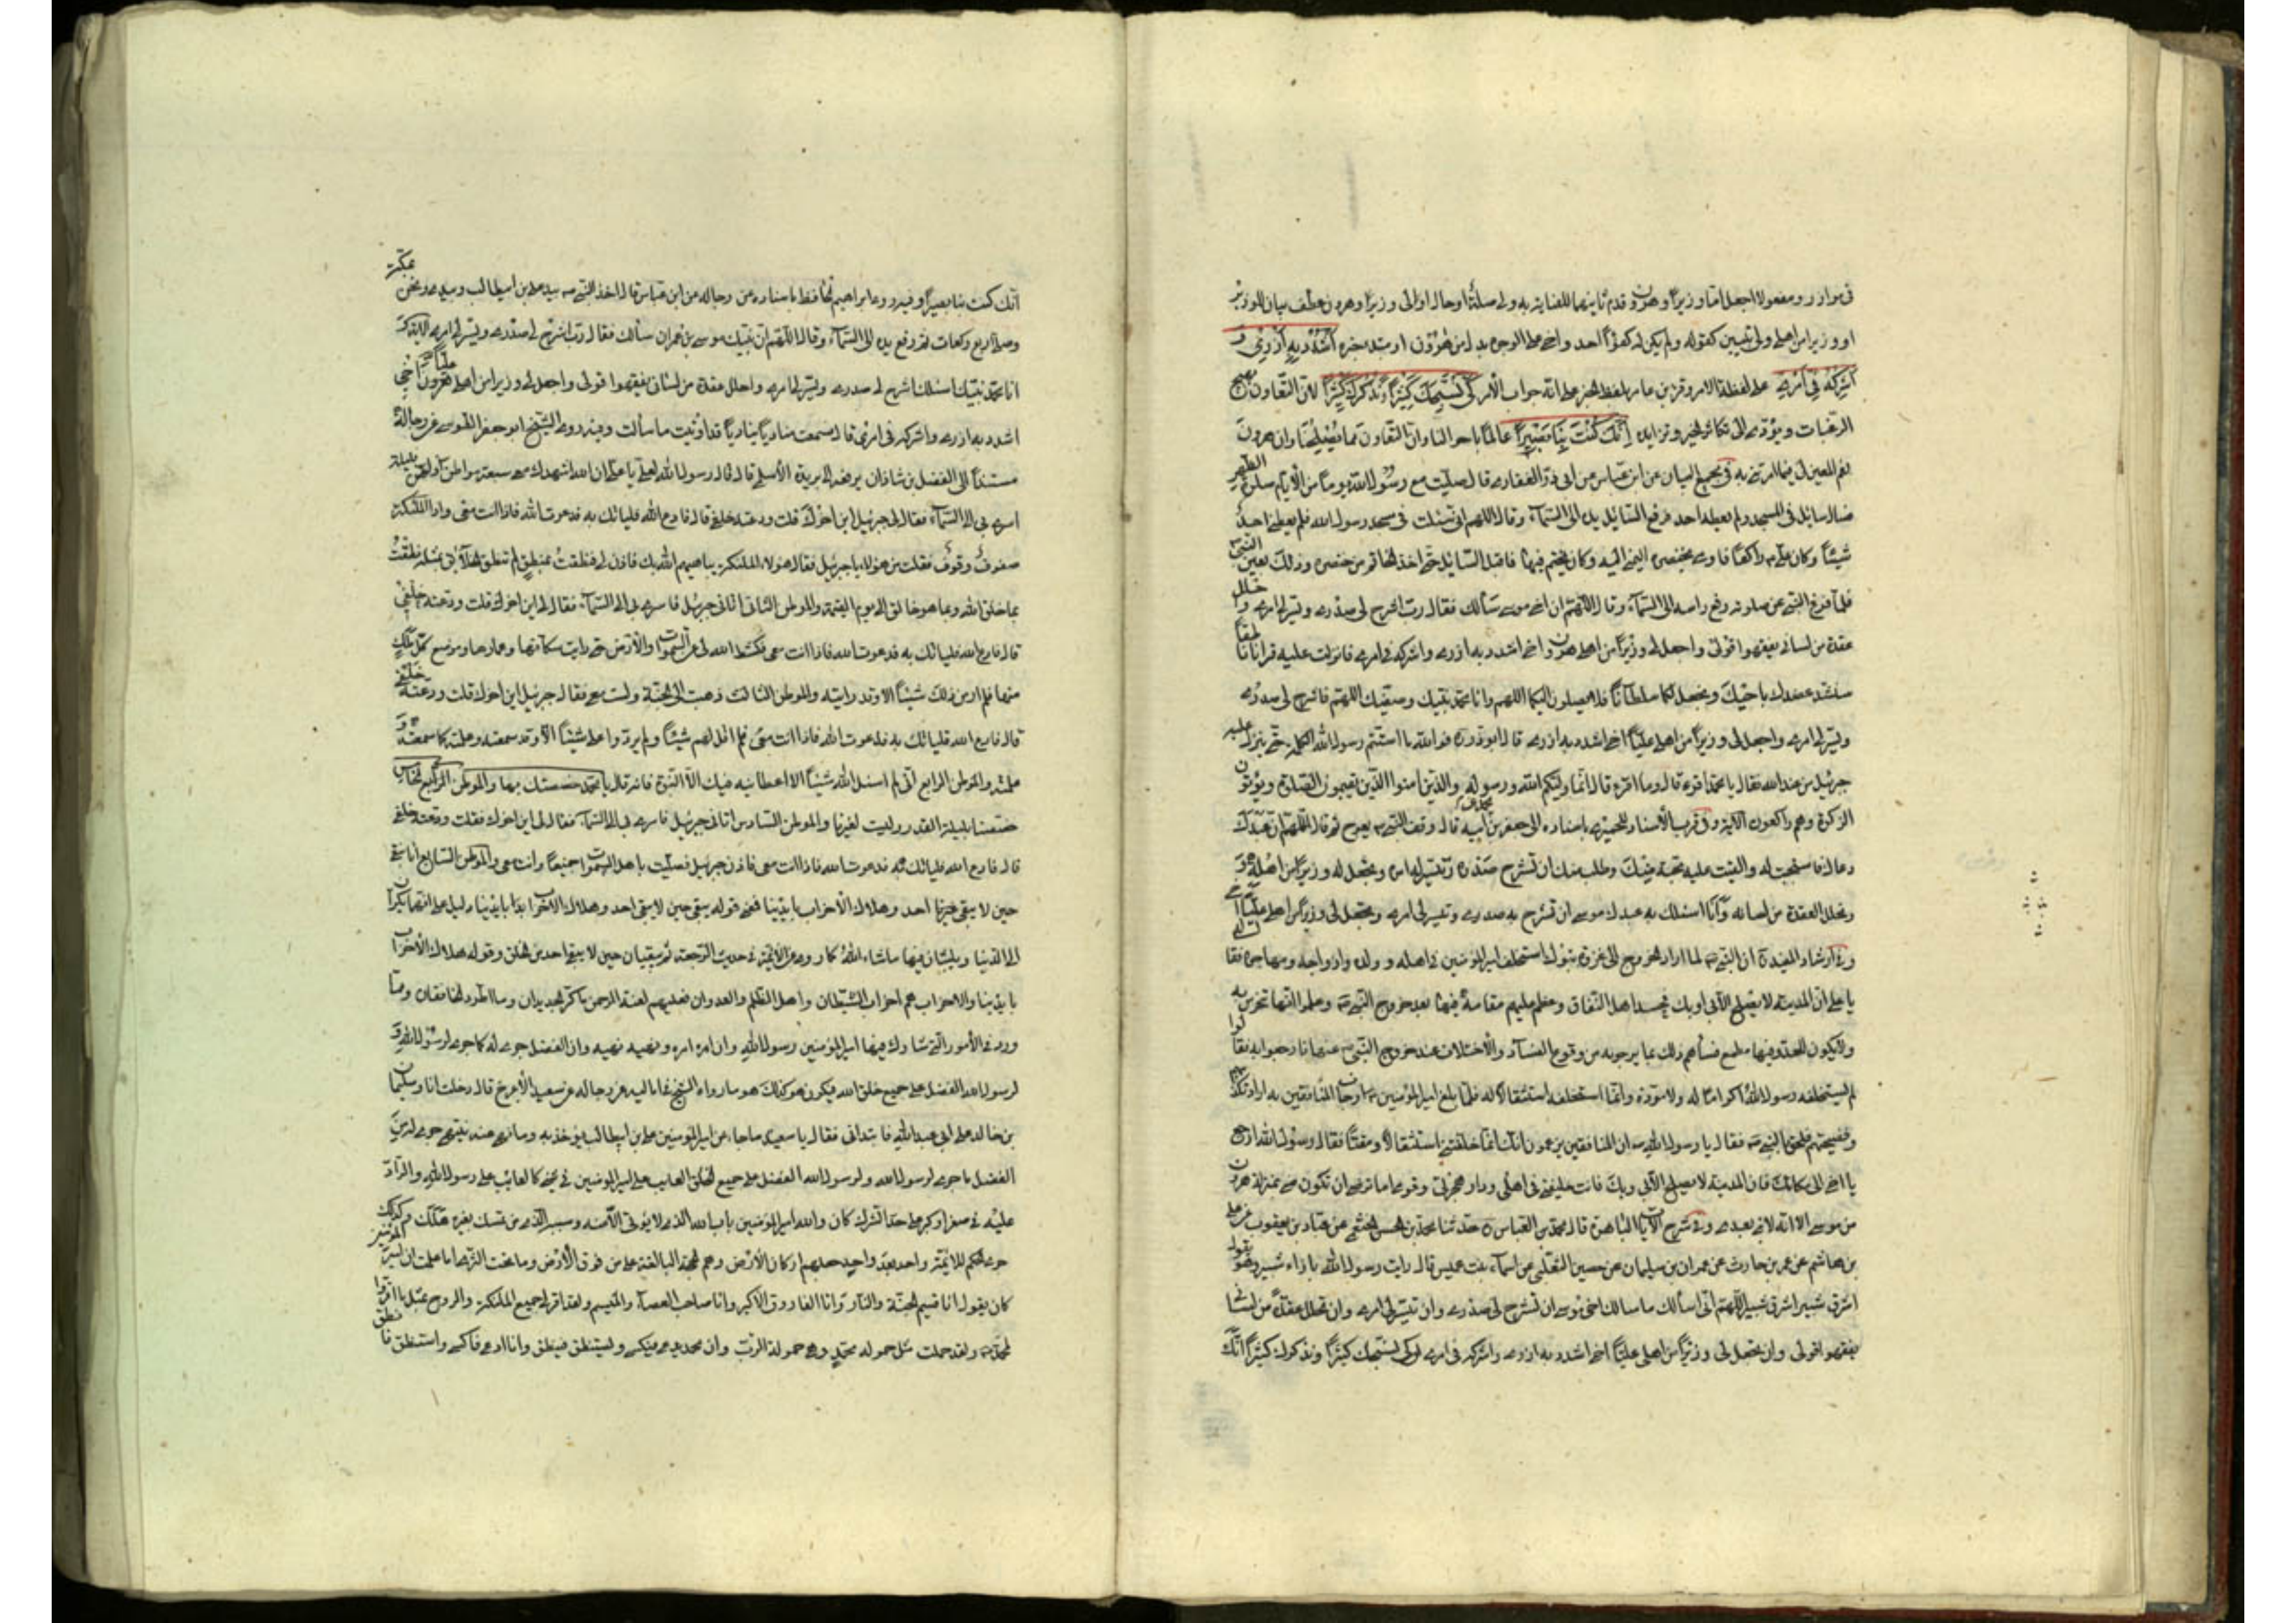 في موازر ومفعولا اجعل اما وزيرا وهرون وقدم ثانيهما للعناية به ولي صلة او حال او لي وزيرا وهرون عطف بيان للوزير
او وزيرا من اهلي ولي تبيين كقوله ولم يكن له كفوا احد واخي على الوجوه بدل من هرون او مبتدا خبره اشدد به ازري و
اشركه في امري على لفظة الامر وقرئ بن عامر بلفظ الخبر على انه جواب الأمر كي نسبحك كثيرا ونذكرك كثيرا لان التعاون يهيج
الرغبات ويؤدي الى تكاثر الخير وتزايده إنك كنت بنا بصيرا عالما باحوالنا وان التعاون مما يصلحنا وان هرون
نعم المعين لي فيما امرتني به في مجمع البيان عن ابن عباس عن ابي ذر الغفاري قال صليت مع رسول الله يوما من الأيام صلوة الظهر
فسال سايل في المسجد ولم يعطه احد فرفع السائل يده الى السماء وقال اللهم اني سئلت في مسجد رسول الله فلم يعطني احد
شيئا وكان علي راكعا فاومى بخنصره اليمنى اليه وكان يختم فيها فاقبل السائل حتى اخذ الخاتم من خنصره وذلك بعين النبي
فلما فرغ النبي من صلوته رفع راسه الى السماء وقال اللهم ان اخي موسى سألك فقال رب اشرح لي صدري ويسر لي امري واحلل
عقدة من لساني يفقهوا قولي واجعل لي وزيرا من اهلي هرون اخي اشدد به ازري واشركه في امري فانزلت عليه قرانا ناطقا
سنشد عضدك باخيك ونجعل لكما سلطانا فلا يصلون اليكما اللهم وانا محمد نبيك وصفيك اللهم فاشرح لي صدري
ويسر لي امري واجعل لي وزيرا من اهلي عليا اخي اشدد به ازري قال ابو ذر فوالله ما استتم رسول الله الكلمة حتى نزل عليه
جبرئيل من عند الله فقال يا محمد اقرء قال وما اقرء قال انما وليكم الله ورسوله والذين امنوا الذين يقيمون الصلوة ويؤتون
الزكوة وهم راكعون الآية وفي قرب الأسناد للحميري باسناده الى جعفر بن محمد عن ابيه قال وقف النبي بعرفة ثم قال اللهم ان عبدك
دعاك فاستجبت له والقيت عليه محبة منك وطلب منك ان تشرح صدره وتيسر له امره وتجعل له وزيرا من اهله و
وتحلل العقدة من لسانه وانا اسئلك به عبدك موسى ان تشرح به صدري وتيسر لي امري وتجعل لي وزيرا من اهلي عليا اخي
وفي ارشاد المفيد ان النبي لما اراد الخروج الى غزوة تبوك استخلف امير المؤمنين في اهله وولده وازواجه ومهاجره فقال له
يا علي ان المدينة لا يصلح الا بي او بك فحسده اهل النفاق وعظم عليهم مقامه فيها بعد خروج النبي وعلموا انها تحرس به
ولا يكون للعدو فيها مطمع فساءهم ذلك بما يرجونه من وقوع الفساد والأختلاف عند خروج النبي عنها فارجفوا به فقالوا
لم يستخلفه رسول الله اكراما له ولا مودة وانما استخلفه استثقالا له فلما بلغ امير المؤمنين ارجاف المنافقين به اراد تكذيبهم
وفضيحتهم فلحق بالنبي فقال يا رسول الله ان المنافقين يزعمون انك انما خلفتني استثقالا ومقتا فقال رسول الله ارجع
يا اخي الى مكانك فان المدينة لا يصلح الا بي وبك فانت خليفتي في اهلي ودار هجرتي وقومي اما ترضى ان تكون مني بمنزلة هرون
من موسى الا انه لا نبي بعدي وفي شرح الآيات الباهرة قال محمد بن العباس حدثنا محمد بن الحسن الخثعمي عن عباد بن يعقوب عن علي
بن هاشم عن عمر بن حارث عن عمران بن سليمان عن حصين الثعلبي عن اسماء بنت عميس قالت رايت رسول الله بازاء ثبير وهو يقول
اشرق ثبير اشرق ثبير اللهم اني اسألك ما سالك اخي موسى ان تشرح لي صدري وان تيسر لي امري وان تحلل عقدة من لساني
يفقهوا قولي وان تجعل لي وزيرا من اهلي عليا اخي اشدد به ازري واشركه في امري كي نسبحك كثيرا ونذكرك كثيرا انك
انك كنت بنا بصيرا وفيه روى ابراهيم الحافظ باسناده عن رجاله عن ابن عباس قال اخذ النبي بيد علي بن ابيطالب وبيدي ونحن بمكة
وصلى اربع ركعات ثم رفع يده الى السماء وقال اللهم ان نبيك موسى بن عمران سألك فقال رب اشرح لي صدري ويسر لي امري الآية
انا محمد نبيك اسئلك اشرح لي صدري ويسر لي امري واحلل عقدة من لساني يفقهوا قولي واجعل لي وزيرا من اهلي عليا اخي
اشدد به ازري واشركه في امري قال فسمعت مناديا ينادي قد اوتيت ما سألت وفيه روى الشيخ ابو جعفر الطوسي عن رجاله
مسندا الى الفضل بن شاذان يرفعه الى بريدة الأسلمي قال قال رسول الله لعلي يا علي ان الله اشهدك معي سبعة مواطن اولهن ليلة
اسري بي الى السماء فقال لي جبرئيل اين اخوك قلت ودعته خلفي قال فادع الله فلياتك به فدعوت الله فاذا انت معي واذا الملئكة
صفوف وقوف فقلت من هؤلاء يا جبرئيل فقال هؤلاء الملئكة يباهيهم الله بك فاذن لي فنطقت بمنطق لم تنطق الخلائق بمثله نطقت
بما خلق الله وبما هو خالق الى يوم القيمة والموطن الثاني اتاني جبرئيل فاسرى بي الى السماء فقال لي اين اخوك قلت ودعته خلفي
قال فادع الله فلياتك به فدعوت الله فاذا انت معي فكشط الله لي عن السموات والأرض حتى رايت سكانها وعمارها وموضع كل ملك
منها فلم ار من ذلك شيئا الا وقد رايته والموطن الثالث ذهبت الى الجنة ولست معي فقال جبرئيل اين اخوك قلت ودعته خلفي
قال فادع الله فلياتك به فدعوت الله فاذا انت معي فلم اقل لهم شيئا ولم يردوا علي شيئا الا وقد سمعته وعلمته كما سمعته و
علمته والموطن الرابع اني لم اسئل الله شيئا الا اعطانيه فيك الا النبوة فانه قال يا محمد خصصتك بها والموطن الخامس
خصصنا بليلة القدر وليست لغيرنا والموطن السادس اتاني جبرئيل فاسرى بي الى السماء فقال لي اين اخوك فقلت ودعته خلفي
قال فادع الله فلياتك به فدعوت الله فاذا انت معي فاذن جبرئيل فصليت باهل السموات جميعا وانت معي والموطن السابع انا نبقى
حين لا يبقى احد وهلاك الأحزاب بايدينا فمعنى قوله يبقى حين لا يبقى احد وهلاك الاحزاب بايدينا دليل على انهما يكران
الى الدنيا ويلبثان فيها ما شاء الله كما روي عن الأئمة في حديث الرجعة ثم يبقيان حين لا يبقى احد من الخلق وقوله هلاك الأحزاب
بايدينا والاحزاب هم احزاب الشيطان واهل الظلم والعدوان فعليهم لعنة الرحمن ما كر الجديدان وما اطرد الخافقان ومما
ورد في الأمور التي شارك فيها امير المؤمنين رسول الله وان امره امره ونهيه نهيه وان الفضل جرى له كما جرى لرسول الله و
لرسول الله الفضل على جميع خلق الله فيكون هو كذلك هو ما رواه الشيخ في اماليه عن رجاله عن سعيد الأعرج قال دخلت انا وسليمان
بن خالد على ابي عبد الله فابتداني فقال يا سعيد ما جاء عن امير المؤمنين علي بن ابيطالب يؤخذ به وما نهى عنه ينتهى جرى له من
الفضل ما جرى لرسول الله ولرسول الله الفضل على جميع الخلق العايب على امير المؤمنين في شيء كالعايب على رسول الله والراد
عليه في صغير او كبير على حد الشرك كان والله امير المؤمنين باب الله الذي لا يؤتى الا منه وسبيله الذي من تمسك بغيره هلك وكذلك
جرى حكم الائمة واحد بعد واحد جعلهم اركان الأرض وهم الحجة البالغة على من فوق الأرض وما تحت الثرى اما علمت ان امير المؤمنين
كان يقول انا قسيم الجنة والنار وانا الفاروق الاكبر وانا صاحب العصا والميسم ولقد اقر لي جميع الملئكة والروح بمثل ما اقروا
لمحمد ولقد حملت مثل حمولة محمد وهي حمولة الرب وان محمد يدعى فيكسى ويستنطق فينطق وانا ادعى فاكسى واستنطق فانطق